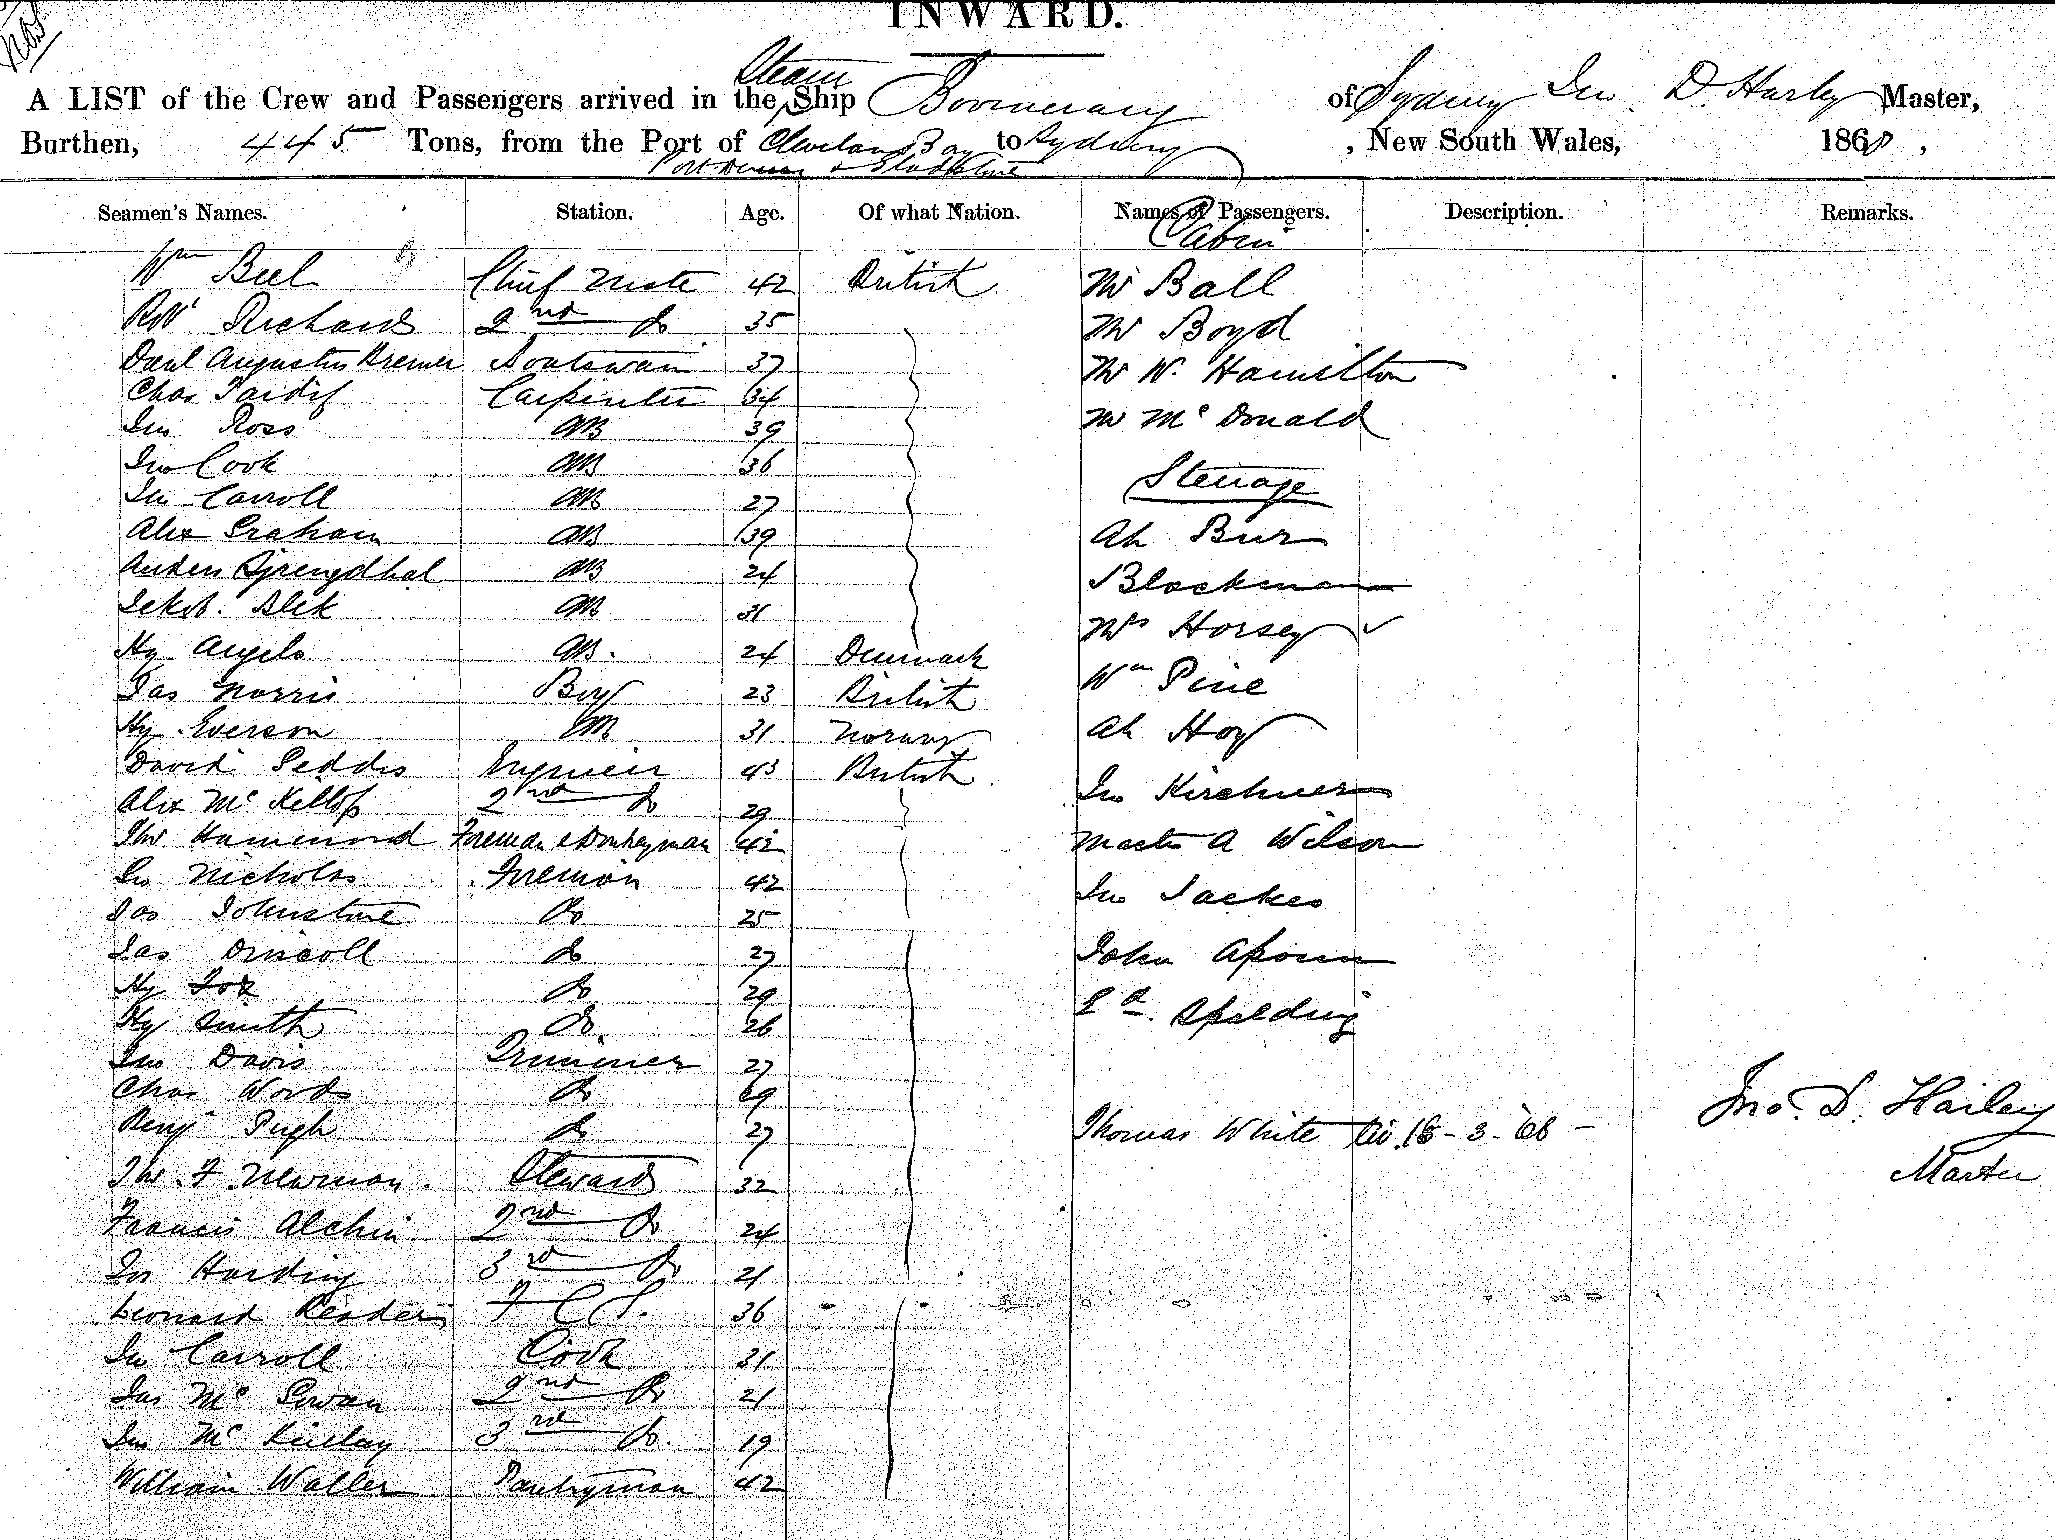 INWARD.
A LIST of the Crew and Passengers arrived in the Steam Ship Boomerang of Sydney Jno. D. Harley Master,
Burthen, 445 Tons, from the Port of Cleveland Bay to Sydney, New South Wales, 1868,
Port Denison & Gladstone
Seamen's Names. Station. Age. Of what Nation. Names of Passengers. Description. Remarks.
Cabin
Wm Bell Chief Mate 42 British Mr Ball
Robt Richards 2nd Do 35 Mr Boyd
Danl Augustus Bremer Boatswain 37 Mr W. Hamilton
Chas Tardif Carpenter 34
Jno Ross AB 39 Mr McDonald
Jno Cook AB 36
Steerage
Jno Carroll AB 27
Alex Graham AB 39 Ah Bur
Anders AB 24 Blackman
Jakob. Blek AB 31 Mrs Horsey
Hy Angelo AB. 24 Denmark
Jas Norris Boy 23 British Wm Pine
Hy Everson AB 31 Norway Ah Hoy
David Geddis Engineer 43 British
Alex McKillop 2nd Do 29 Jno Kirchner
Thos Hammond Foreman & Donkeyman 42 Master A Wilson
Jno Nicholas Fireman 42 Jno Jackes
Jas Johnstone Do 25
Jas Driscoll Do 27 John
Hy Fox Do 29
Hy Smith Do 26 Ed. Spalding
Jno Davis Trimmer 27
Chas Woods Do 29 Jno. D. Harley
Benj Pugh Do 27 Thomas White 18-3-68 - Master
Thos. F. Newman Steward 32
Francis Alchin 2nd Do 24
Jos Harding 3rd Do 21
Leonard 36
Jno Carroll Cook 31
Jas McGowan 2nd Do 21
Jno McKinlay 3rd Do. 19
William Waller Pantryman 42